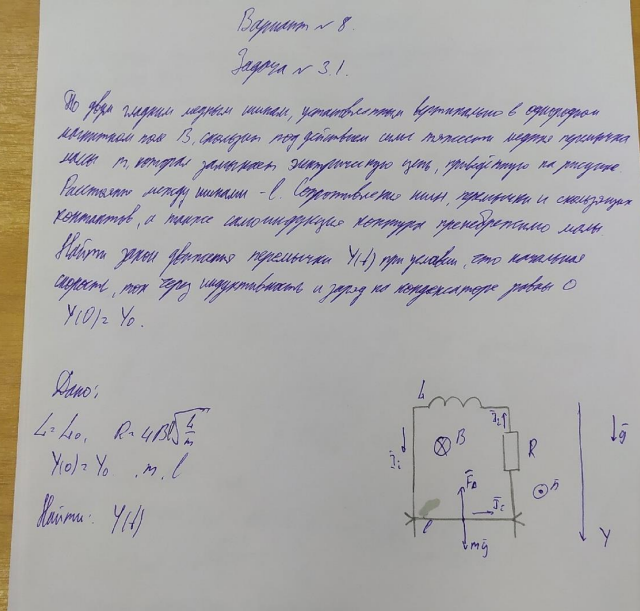 Вариант № 8.
Задача № 3.1.
По двум гладким медным шинам, установленным вертикально в однородном
магнитном поле B, скользит под действием силы тяжести медная перемычка
массы m, которая замыкает электрическую цепь, приведённую на рисунке.
Расстояние между шинами - l. Сопротивление шин, перемычки и скользящих
контактов, а также самоиндукция контура пренебрежимо малы.
Найти закон движения перемычки Y(t) при условии, что начальная
скорость, ток через индуктивность и заряд на конденсаторе равны 0
Y(0)= Y₀.
Дано:
L = L₀, R = 4Bl√(L/m)
Y(0)= Y₀ , m, l
Найти: Y(t)
L
B
R
n
g
F_A
l
mg
Y